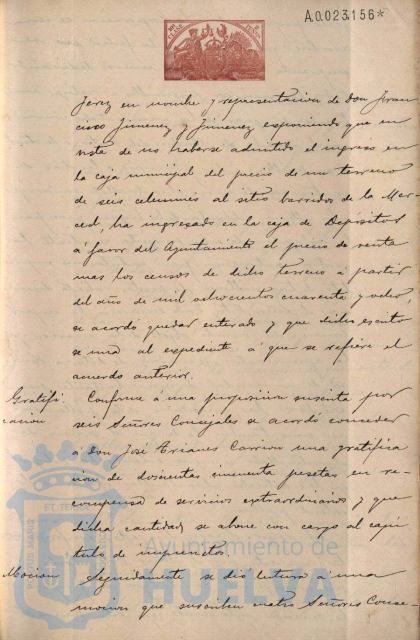 A.0.023.156*
Jerez en nombre y representacion de don Fran
cisco Jimenez y Jimenez exponiendo que en
vista de no haberse admitido el ingreso en
la caja municipal del precio de un terreno
de seis celemines al sitio barridos de la Mer-
ced, ha ingresado en la caja de Depósitos
á favor del Ayuntamiento el precio de venta
mas los censos de dicho terreno á partir
del año de mil ochocientos cuarenta y ocho
se acordó quedar enterado y que dicho escrito
se una al expediente á que se refiere el
acuerdo anterior.
Gratifi
cacion
Conforme á una proposicion suscrita por
seis Señores Concejales se acordó conceder
á don José Arianes Carrion una gratifica
cion de doscientas cincuenta pesetas en re-
compensa de servicios extraordinarios y que
dicha cantidad se abone con cargo al capi
tulo de imprevistos.
Mocion
Seguidamente se dió lectura á una
mocion que suscriben cuatro Señores Conce-
Ayuntamiento de
HUELVA